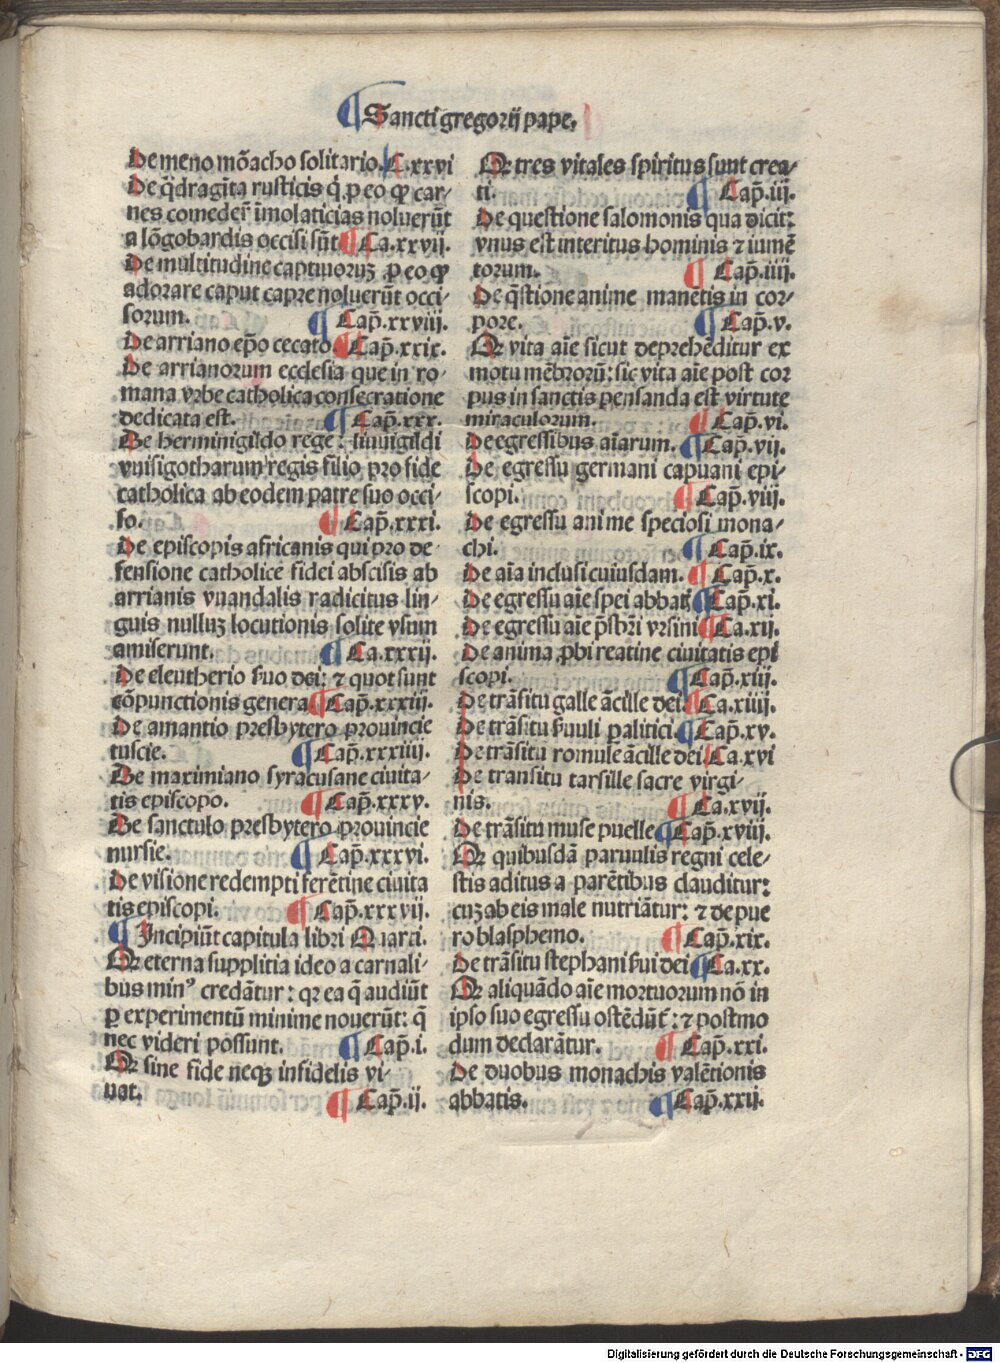 ¶ Sancti gregorij pape.
De meno mōacho solitario. C.xxvi
De q̄dragīta rusticis q̄ ꝓ eo ꝙ car-
nes comeder̄ īmolaticias noluerūt
a lōgobardis occisi sūt ¶ Ca.xxvii.
De multitudine captiuoruꝫ ꝓ eo ꝙ
adorare caput capre noluerūt occi-
sorum. ¶ Cap̄.xxviii.
De arriano ep̄o cecato. ¶ Cap̄.xxix.
De arrianorum ecclesia que in ro-
mana vrbe catholica consecratione
dedicata est. ¶ Cap̄.xxx.
De herminigildo rege: liuuigildi
vuisigotharum regis filio pro fide
catholica ab eodem patre suo occi-
so. ¶ Cap̄.xxxi.
De episcopis africanis qui pro de-
fensione catholice fidei abscisis ab
arrianis vuandalis radicitus lin-
guis nulluꝫ locutionis solite vsum
amiserunt. ¶ Ca.xxxij.
De eleutherio s̄uo dei: ⁊ quot sunt
cōpunctionis genera ¶ Cap̄.xxxiij.
De amantio presbytero prouincie
tuscie. ¶ Cap̄.xxxiiij.
De maximiano syracusane ciuita-
tis episcopo. ¶ Cap̄.xxxv.
De sanctulo presbytero prouincie
nursie. ¶ Cap̄.xxxvi.
De visione redempti ferētine ciuita
tis episcopi. ¶ Cap̄.xxxvij.
¶ Incipiūt capitula libri Quarti.
Qꝛ eterna supplitia ideo a carnali-
bus minꝰ credātur: qꝛ ea q̄ audiūt
ꝑ experimentū minime nouerūt: q̄
nec videri possunt. ¶ Cap̄.i.
Qꝛ sine fide neqꝫ infidelis vi-
uat. ¶ Cap̄.ij.
Qꝛ tres vitales spiritus sunt crea-
ti. ¶ Cap̄.iij.
De questione salomonis qua dicit:
vnus est interitus hominis ⁊ iumē
torum. ¶ Cap̄.iiij.
De q̄stione anime manētis in cor-
pore. ¶ Cap̄.v.
Qꝛ vita aīe sicut deprehēditur ex
motu mēbrorū: sic vita aīe post cor
pus in sanctis pensanda est virtute
miraculorum. ¶ Cap̄.vi.
De egressibus aīarum. ¶ Cap̄.vij.
De egressu germani capuani epi-
scopi. ¶ Cap̄.viij.
De egressu anime speciosi mona-
chi. ¶ Cap̄.ix.
De aīa inclusi cuiusdam. ¶ Cap̄.x.
De egressu aīe spei abbatꝭ ¶ Cap̄.xi.
De egressu aīe p̄sbr̄i vrsini ¶ Ca.xij.
De anima ꝓbi reatine ciuitatis epi
scopi. ¶ Cap̄.xiij.
De trāsitu galle ācille dei. ¶ Ca.xiiij.
De trāsitu s̄uuli palitici. ¶ Cap̄.xv.
De trāsitu romule ācille dei ¶ Ca.xvi
De transitu tarsille sacre virgi-
nis. ¶ Ca.xvij.
De trāsitu muse puelle ¶ Cap̄.xviij.
Qꝛ quibusdā paruulis regni cele-
stis aditus a parētibus clauditur:
cuꝫ ab eis male nutriātur: ⁊ de pue
ro blasphemo. ¶ Cap̄.xix.
De trāsitu stephani s̄ui dei ¶ Ca.xx.
Qꝛ aliquādo aīe mortuorum nō in
ipso suo egressu ostēdūt̄: ⁊ postmo
dum declarātur. ¶ Cap̄.xxi.
De duobus monachis valētionis
abbatis. ¶ Cap̄.xxij.
Digitalisierung gefördert durch die Deutsche Forschungsgemeinschaft - DFG